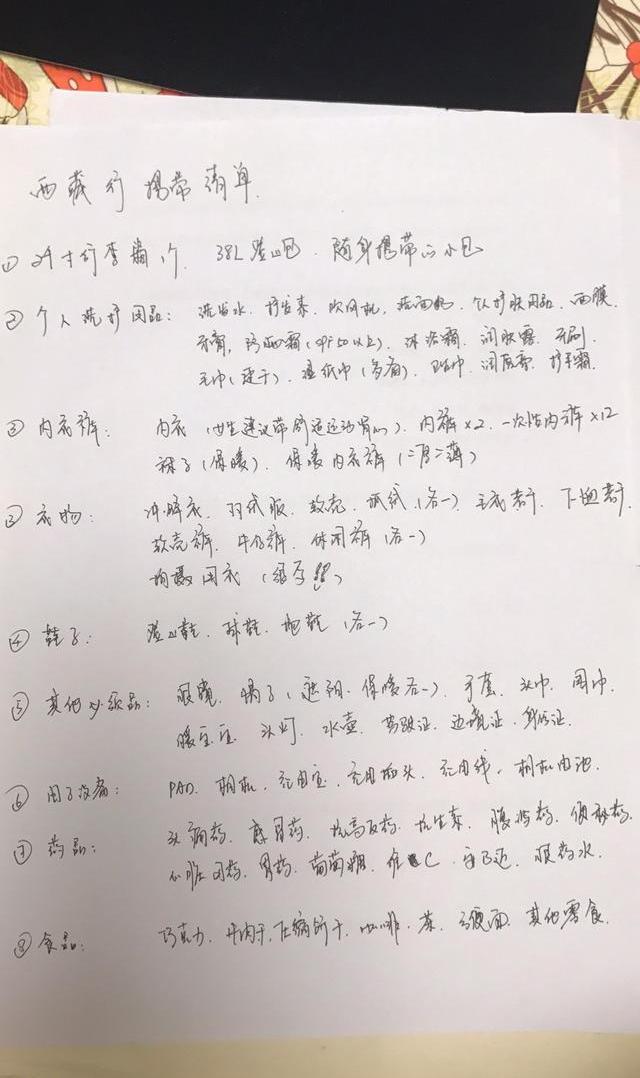 西藏行携带清单.
① 24寸行李箱1个. 38L登山包. 随身携带的小包
② 个人洗护用品: 洗发水. 护发素. 吹风机. 洗面奶. 个人护肤用品. 面膜
牙膏, 防晒霜(SPF50以上). 沐浴霜. 润肤露. 牙刷.
毛巾(速干). 湿纸巾(多备). 卫生巾. 润唇膏. 护手霜.
② 内衣裤: 内衣(女生建议带舒适运动背心). 内裤×2. 一次性内裤×12
袜子(保暖). 保暖内衣裤(二厚二薄)
③ 衣物: 冲锋衣. 羽绒服. 软壳. 抓绒(各一). 下
软壳裤. 牛仔裤. 休闲裤(各一)
拍摄用衣
④ 鞋子: 登山鞋. 球鞋. 拖鞋(各一)
⑤ 其他必须品: 眼镜. 帽子(遮阳. 保暖各一). 手套. 头巾. 围巾.
暖宝宝. 头灯. 水壶. 驾驶证. 边境证. 身份证.
⑥ 电子设备: PAD. 相机. 充电宝. 充电插头. 充电线. 相机电池.
⑦ 药品: 头痛药. 感冒药. 抗高反药. 抗生素. 腹泻药. 便秘药.
心脏用药. 胃药. 葡萄糖. 维C. 白 眼药水.
⑧ 食品: 巧克力. 牛肉干. 压缩饼干. 咖啡. 茶. 方便面. 其他零食.